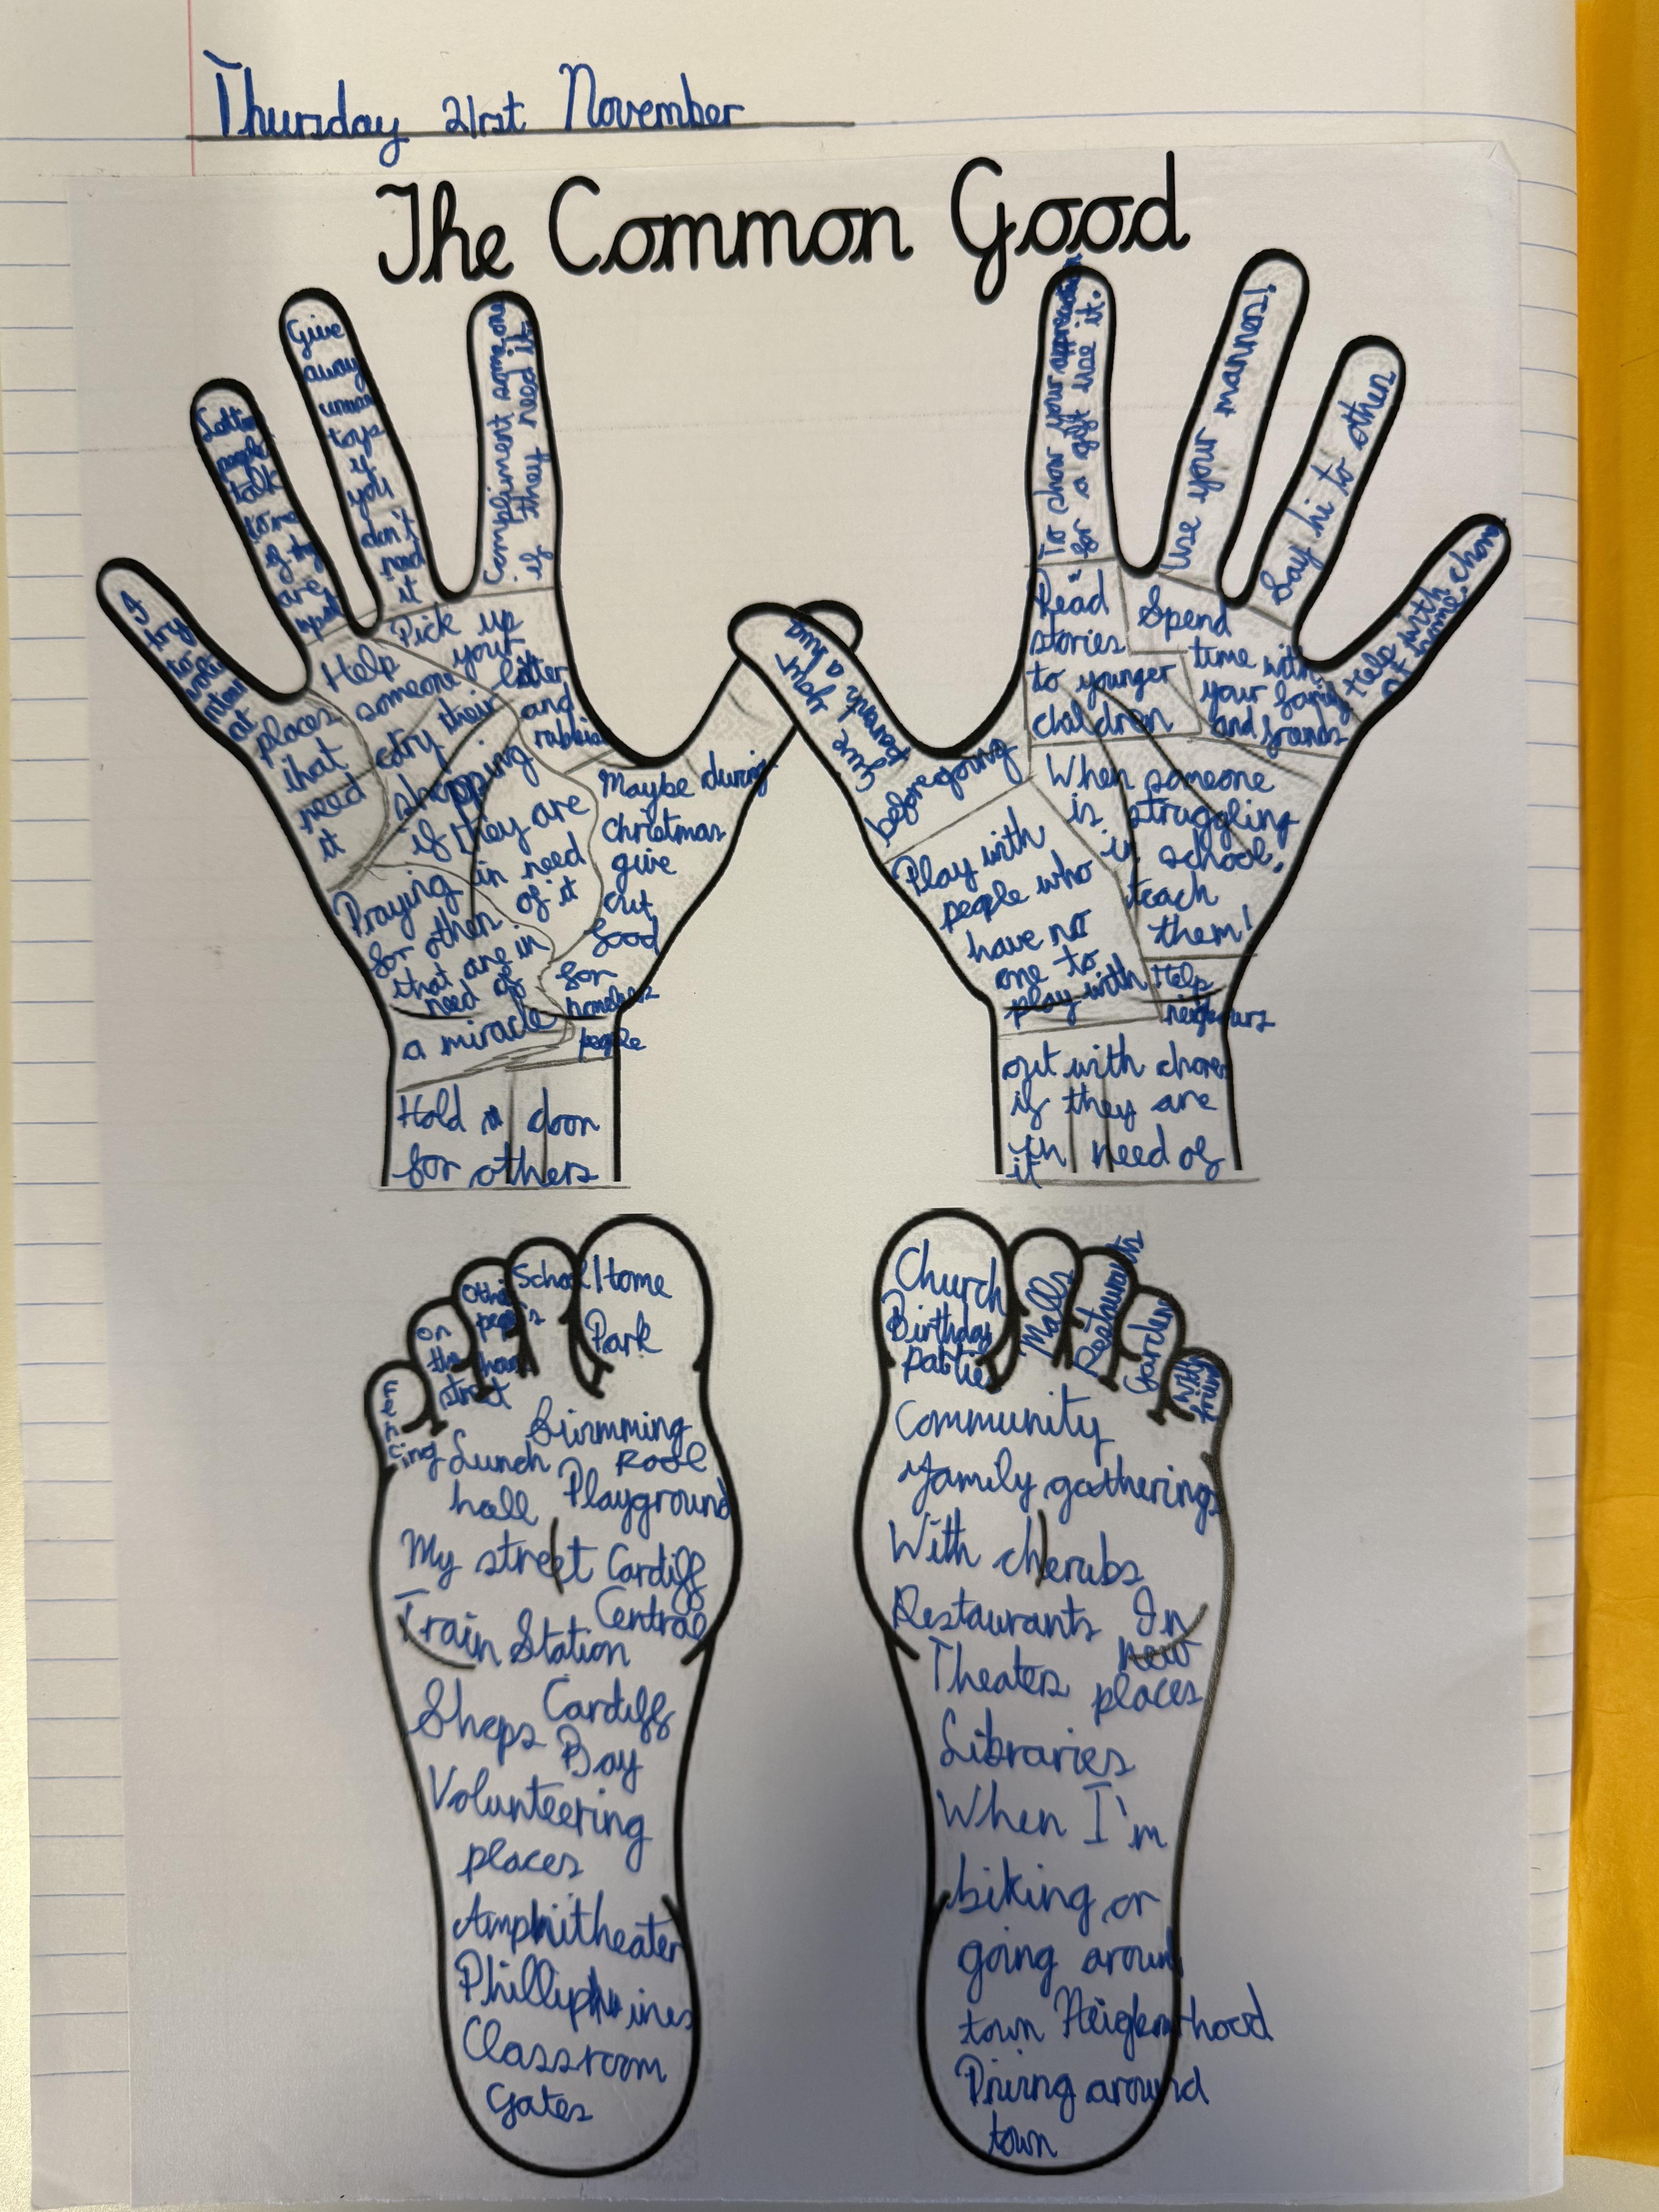 Thursday 21st November
The Common Good
Give
away
toys
if
you
don't
need
it
people
talk
to me
if they
are
Compliment someone
if they need it
places
that
need
it
Help
someone
carry their
shopping
if they are
in need
of it
Pick up
your
litter
and
rubbish
Maybe during
christmas
give
out
food
for
homeless
people
Praying
for others
that are in
need of
a miracle
Hold a door
for others
To show your appreciation
for a gift use it.
Use your manners!
Say hi to others
Help with chores
at home.
Give your
parents a hug
before going
Read
stories
to younger
children
Spend
time with
your family
and friends
When someone
is struggling
in school,
teach
them!
Play with
people who
have no
one to
play with
Help
neighbours
out with chores
if they are
in need of
it
Fencing
on
the
street
Other
people's
School
Home
Park
Swimming
Pool
Lunch
hall
Playground
My street
Cardiff
Central
Train Station
Shops
Cardiff
Bay
Volunteering
places
Amphitheater
Philliphines
Classroom
Gates
Church
Birthday
parties
Malls
Restaurants
Garden
Community
Family gatherings
With cherubs
Restaurants
In
new
places
Theaters
Libraries
When I'm
biking or
going around
town
Neigbourhood
Driving around
town